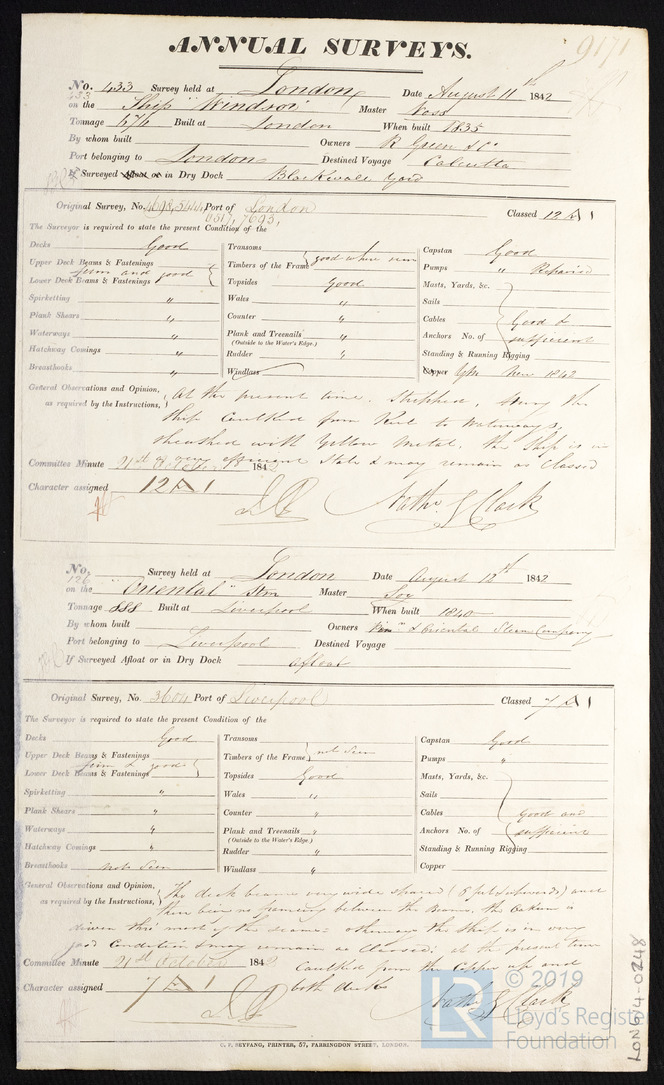 ANNUAL SURVEYS. 9171
No. 433 Survey held at London Date August 11th 1842
433
on the Ship "Windsor" Master Voss
Tonnage 676 Built at London When built 1835
By whom built Owners R Green & Co
Port belonging to London Destined Voyage Calcutta
If Surveyed Afloat or in Dry Dock Blackwall Yard
Original Survey, No. Port of London Classed 12 A 1
The Surveyor is required to state the present Condition of the
Decks Good Transoms Capstan Good
Upper Deck Beams & Fastenings Timbers of the Frame good where seen Pumps " Repaired
firm and good
Lower Deck Beams & Fastenings Topsides Good Masts, Yards, &c.
Spirketting " Wales " Sails
Plank Shears " Counter " Cables Good &
Waterways " Plank and Treenails " Anchors No. of sufficient
(Outside to the Water's Edge.)
Hatchway Comings " Rudder " Standing & Running Rigging
Breasthooks " Windlass Copper New 1842
General Observations and Opinion, At the present time Stripped,
as required by the Instructions, Ship Caulked from Keel to Waterways,
sheathed with Yellow Metal. The Ship is in
Committee Minute 21st October 1842 a very efficient State & may remain as Classed
Character assigned 12 A 1 Nathl. G Clark
No. Survey held at London Date August 12th 1842
126
on the "Oriental" Stm Master Soy
Tonnage 888 Built at Liverpool When built 1840
By whom built Owners & Oriental Steam Company
Port belonging to Liverpool Destined Voyage
If Surveyed Afloat or in Dry Dock afloat
Original Survey, No. 3604 Port of Liverpool Classed 7 A 1
The Surveyor is required to state the present Condition of the
Decks Good Transoms Capstan Good
Upper Deck Beams & Fastenings Timbers of the Frame not Seen Pumps "
firm & good
Lower Deck Beams & Fastenings Topsides Good Masts, Yards, &c.
Spirketting " Wales " Sails
Plank Shears " Counter " Cables Good and
Waterways " Plank and Treenails " Anchors No. of sufficient
(Outside to the Water's Edge.)
Hatchway Comings " Rudder " Standing & Running Rigging
Breasthooks not Seen Windlass " Copper
General Observations and Opinion, The deck beams very wide spaced (5 feet upwards) and
as required by the Instructions, there being no framing between the Beams, the Oakum is
driven thro' most of the seams: otherways the Ship is in very
good Condition & may remain as Classed. at the present time
Committee Minute 21st October 1842 Caulked from the Copper up and
Character assigned 7 A 1 both decks Nathl. G Clark
C. F. SEYFANG, PRINTER, 57, FARRINGDON STREET, LONDON.
LR © 2019
Lloyd's Register
Foundation
LON64-0248